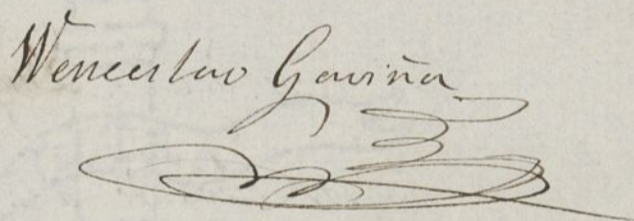 Wenceslao Gaviña